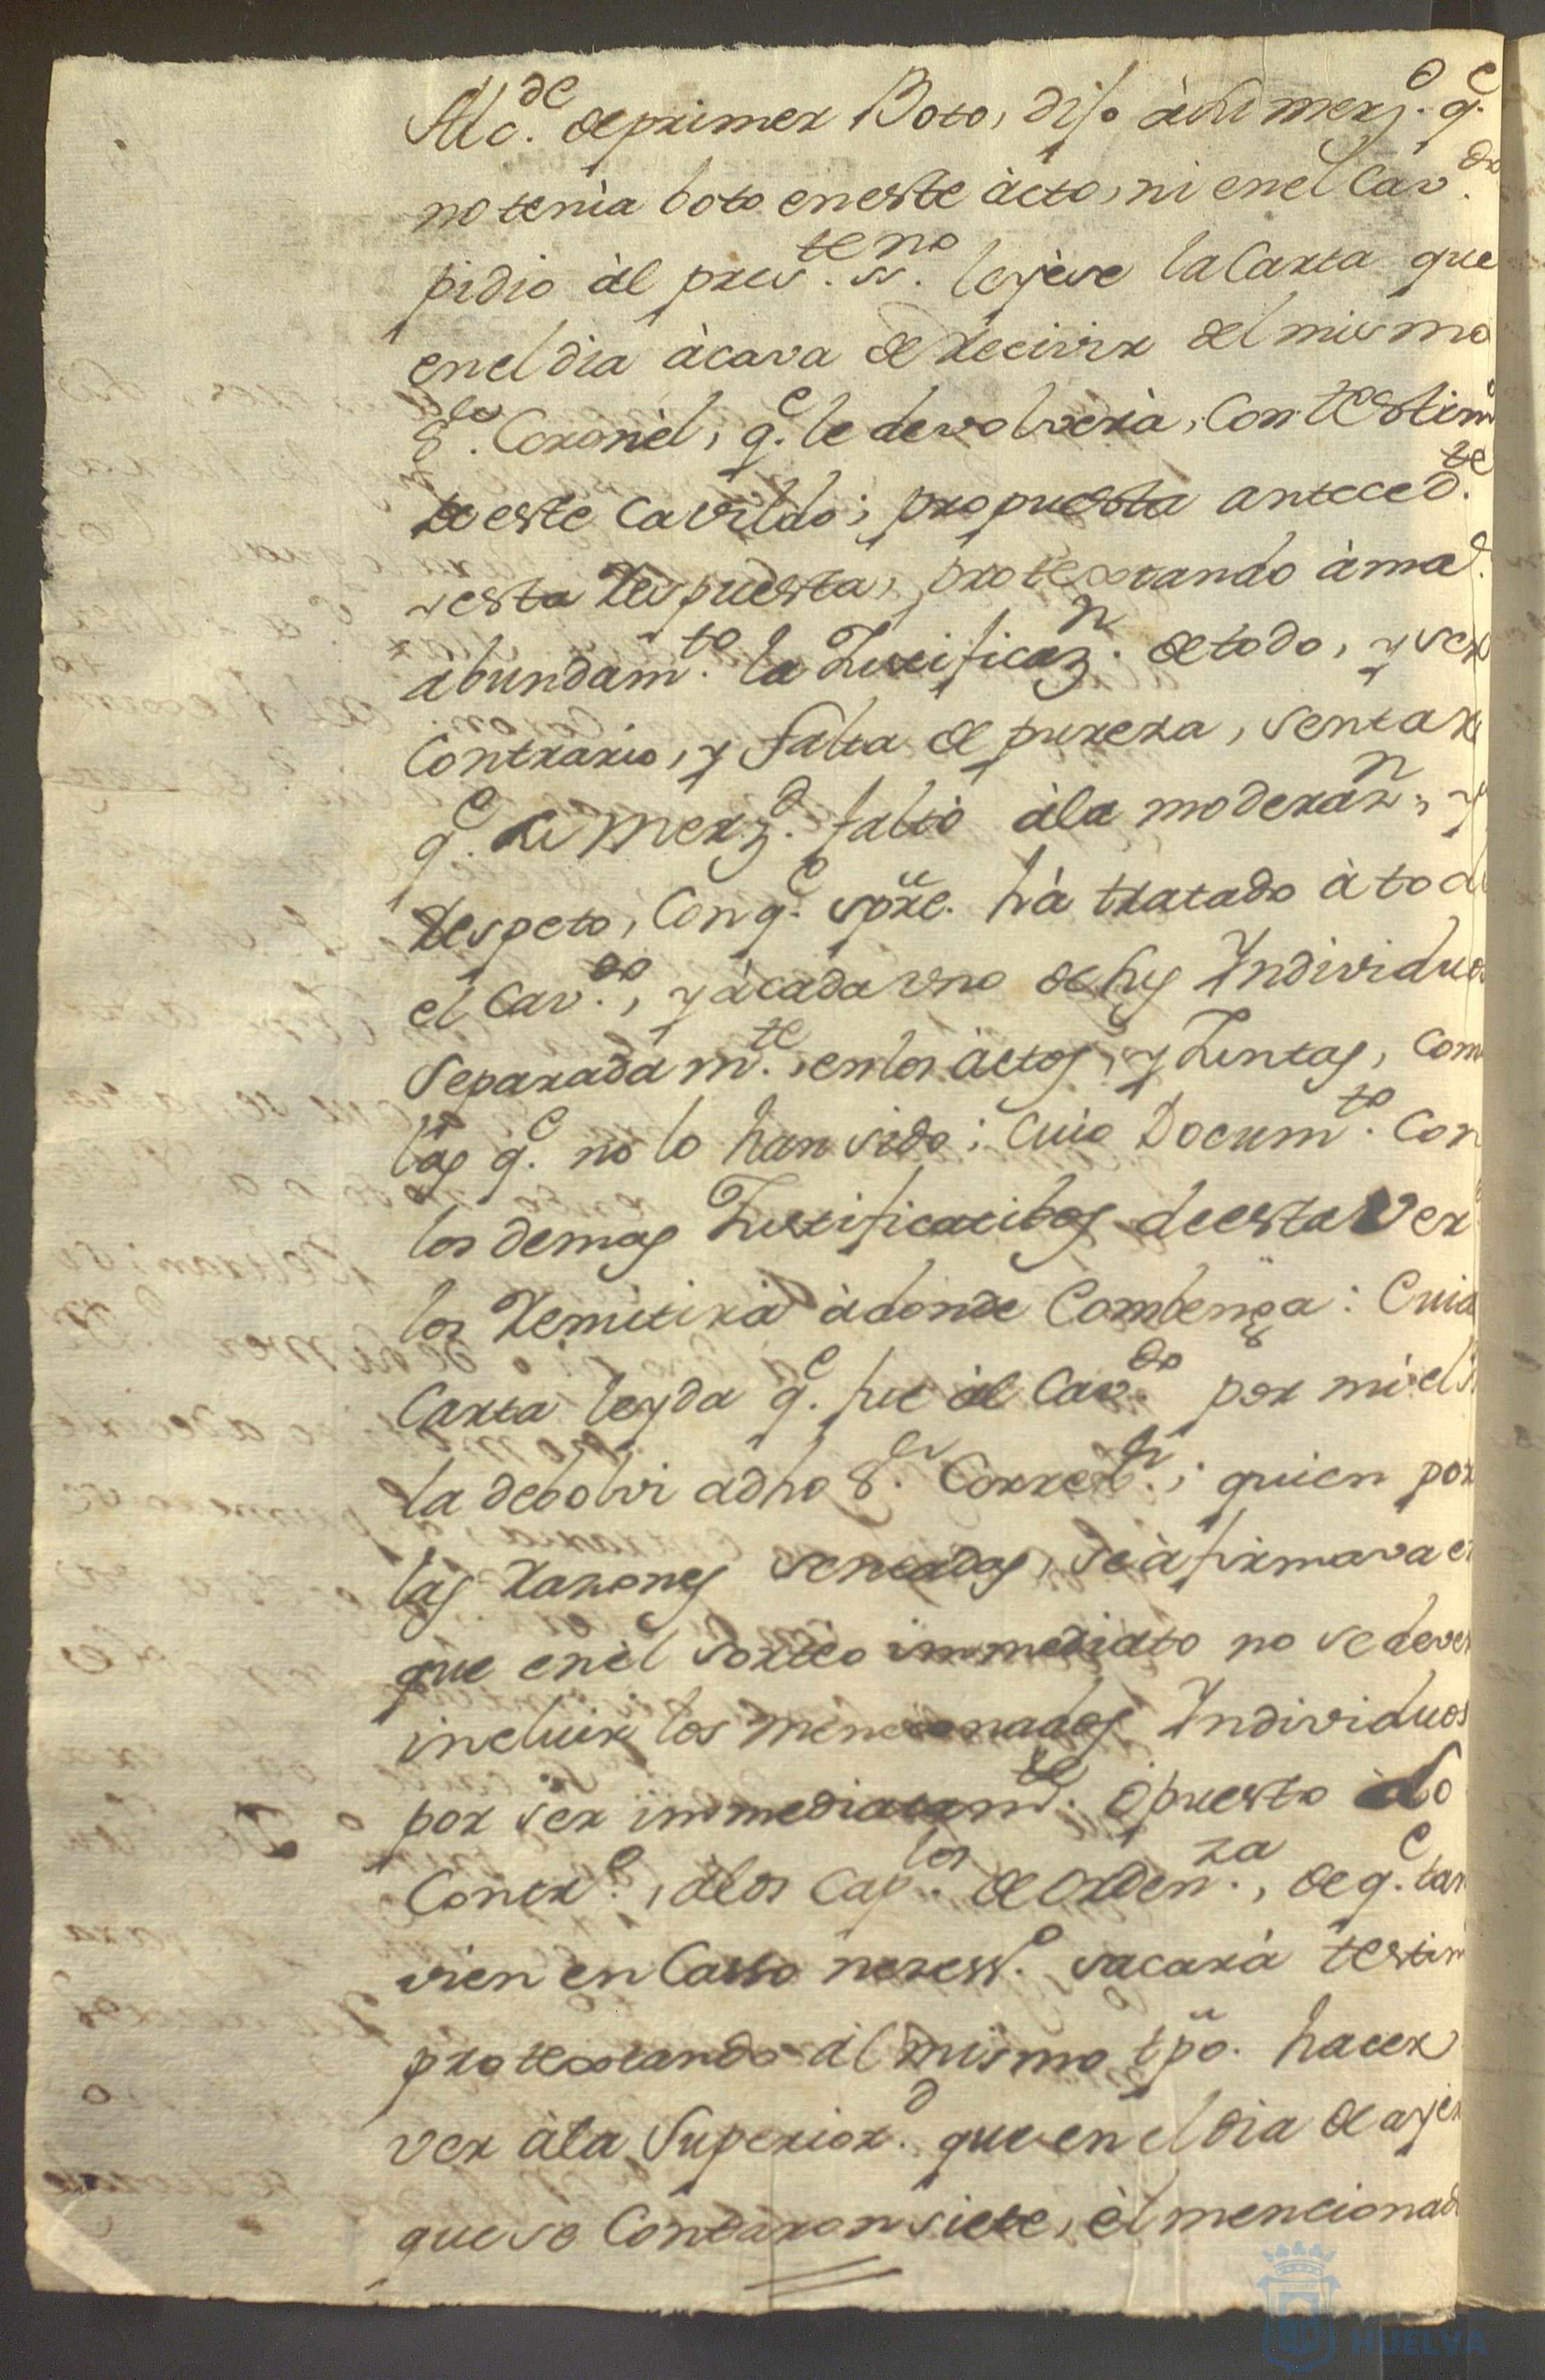 Alc.de de primer Boto, dijo à su merz.d q.e
no tenìa boto en este àcto, ni en el Cav.do
pidio àl pres.te ss.no leyese la Carta que
en el dia àcava de Recivir del mismo
S.or Coronèl, q.e le devolverìa, Con testim
de este Cavildo; propuesta anteced.te
y esta Respuesta, protextando à ma.r
abundam.to la Justificaz.n de todo, y ser
Contrario, y falta de pureza, sentar
q.e su Merz.d faltò àla moderaz.n, y
Respeto, Con q.e spre. hà tratado à todo
el Cav.do, y àcada uno de sus Individuos
Separadam.te, en los àctos, y Juntas, Com
las q.e no lo han sido; Cuio Docum.to Con
los demas Justificatibos de esta Ver
los Remitirà àdonde Combenga: Cuia
Carta leyda q.e fue àl Cav.do por mì el
la debolvi adho S.or Corre.r; quien por
las Razones sentadas, se àfirmava en
que en èl sorteo immediato no se deven
incluir los mencionados Individuos
por ser immediatam.te òpuesto àlo
Contr.o, àlos Cap.los de Orden.za, de q.e tan
vien en Casso nezess.o sacarà testim
protextando àl mismo tpo. hacer
ver àla Superior.d que en el dia de ayer
que se Contaron siete, èl mencionad
HUELVA